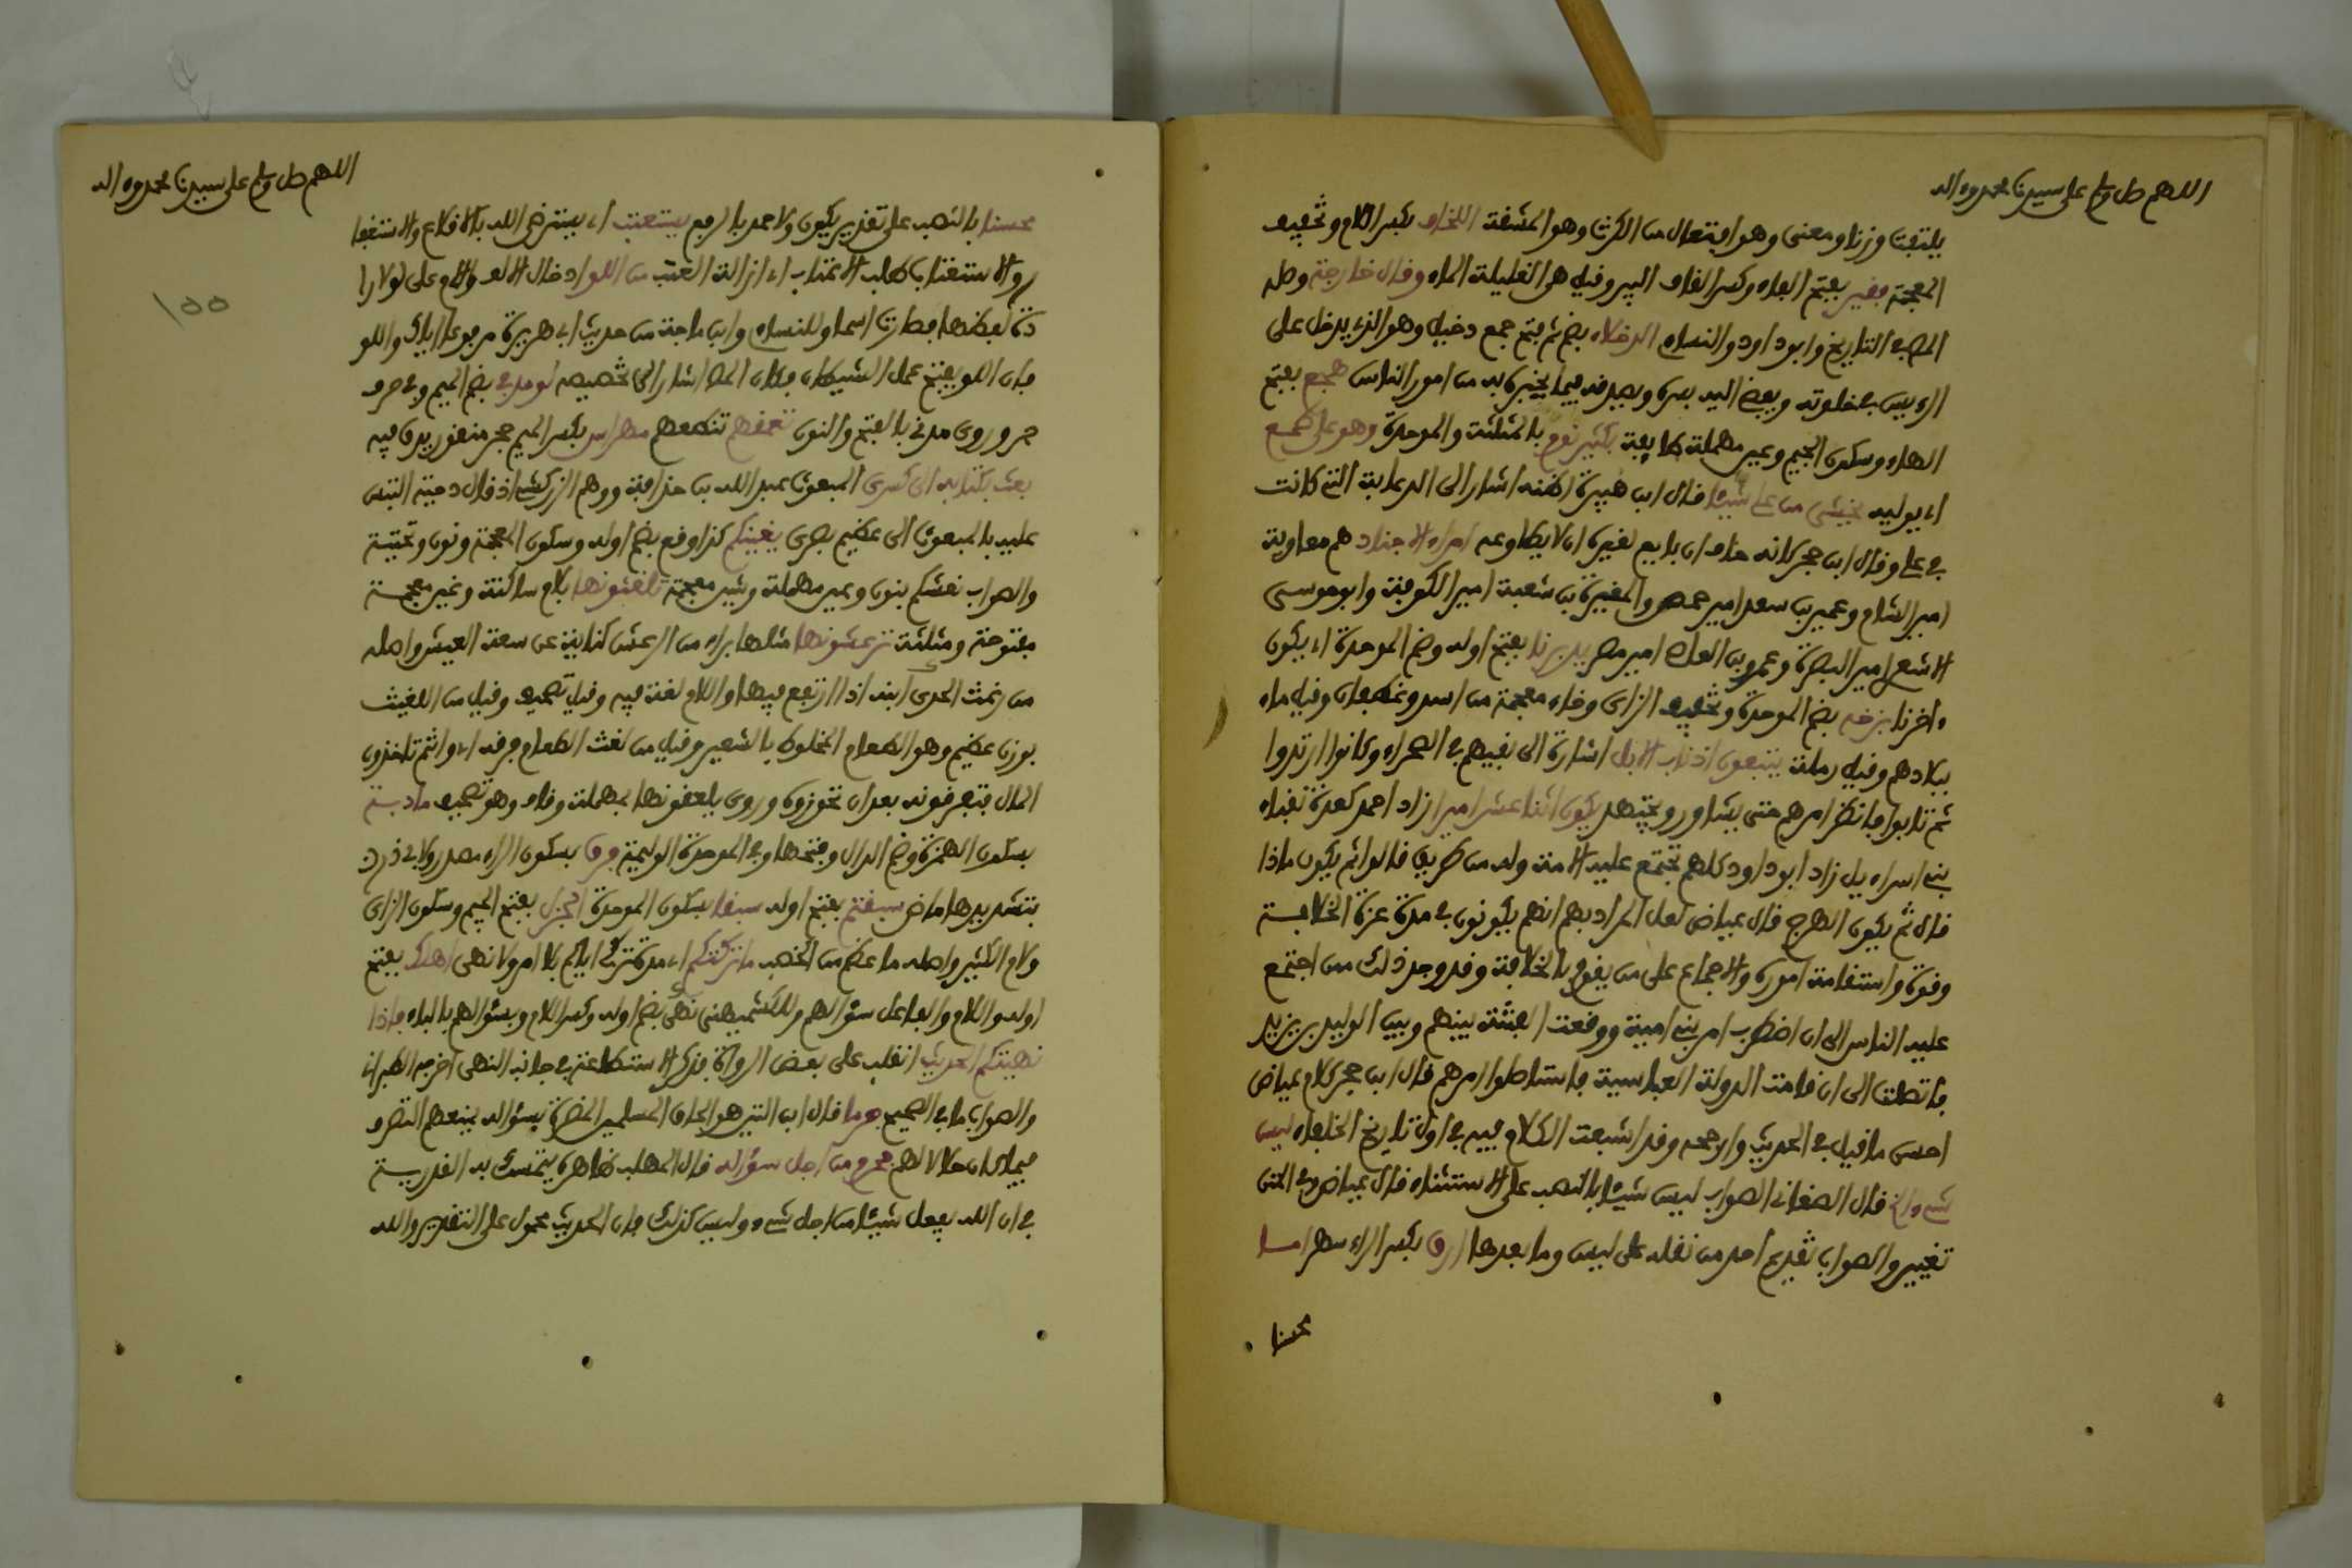 اللهم صل وسلم على سيدنا محمد وءاله
يلتفت وزنا ومعنى وهو افتعال من الكرث وهو المشقة اللخاف بكسر اللام وتخفيف
المعجمة فقير بفتح الفاء وكسر القاف البير وقيل هي القليلة الماء وقال خارجة وصله
المص في التاريخ وابو داود والنساءي الدخلاء بضم ثم فتح جمع دخيل وهو الذي يدخل على
الرءيس في خلوته ويفضي اليه بسره ويصدقه فيما يخبره به من امور الناس هجع بفتح
الهاء وسكون الجيم وعين مهملة طايفة بكثير نوم بالمثلثة والموحدة وهو على طمع
اي يوليه يخشى من علي شيئا قال ابن هبيرة اظنه اشار الى الدعابة التي كانت
في علي وقال ابن حجر كانه خاف ان بايع لغيره ان لا يطاوعه امراء الاجناد هم معاوية
امير الشام وعمير بن سعد امير حمص والمغيرة بن شعبة امير الكوفة وابو موسى
الاشعري امير البصرة وعمرو بن العاص امير مصر يدبرنا بفتح اوله وضم الموحدة اي يكون
ءاخرنا بزاخة بضم الموحدة وتخفيف الزاي وخاء معجمة من اسد وغطفان وقيل ماء
ببلادهم وقيل رملة يتبعون اذناب الابل اشارة الى نفيهم في الصحراء وكانوا ارتدوا
ثم تابوا فانظر امرهم حتى يشاور ويجتهد يكون اثنا عشر اميرا زاد احمد كعدة نقباء
بني اسراءيل زاد ابو داود كلهم تجتمع عليه الامة وله من طريق قالوا ثم يكون ماذا
قال ثم يكون الهرج قال عياض لعل المراد بهم انهم يكونون في مدة عزة الخلافة
وقوة واستقامة اموره والاجماع على من يقوم بالخلافة وقد وجد ذلك من اجتمع
عليه الناس الى ان اضطرب امر بني امية ووقعت الفتنة بينهم وبين الوليد بن يزيد
فاتصلت الى ان قامت الدولة العباسية فاستاصلوا امرهم قال ابن حجر كلام عياض
احسن ما قيل في الحديث وارجحه وقد اشبعت الكلام فيه في اول تاريخ الخلفاء ليس
شيء الخ قال الصغاني الصواب ليس شيئا بالنصب على الاستثناء قال عياض وفي المتن
تغيير والصواب تقديم احد من نقله على ليس وما بعدها ارق بكسر الراء سهر امسا
محسنا
اللهم صل وسلم على سيدنا محمد وءاله
١٥٥
محسنا بالنصب على تقدير يكون ولاحمد بالرفع يستعتب اي يسترضي الله بالاقلاع والاستغفا
ر والاستعتاب طلب الاعتاب اي ازالة العتب من اللو ادخال الالف واللام على لو لارا
دة لفظها فصارت اسما وللنساءي وابن ماجة من حديث ابي هريرة مرفوعا اياك واللو
فان اللو يفتح عمل الشيطان فكان المص اشار الى تخصيصه لو مد بي بضم الميم وبي حرف
جر وروي مدني بالفتح والنون تعمقهم تنطعهم مهراس بكسر الميم حجر منقور يدق فيه
بعث بكتابه الى كسرى المبعوث عبد الله بن حذافة ووهم الزركشي اذ قال دحية التبس
عليه بالمبعوث الى عظيم بصرى يغنيكم كذا وقع بضم اوله وسكون المعجمة ونون وتحتية
والصواب نعشكم بنون وعين مهملة وشين معجمة تلغثونها بلام ساكنة وغين معجمة
مفتوحة ومثلثة ترغثونها مثلها براء من الرغث كناية عن سعة العيش واصله
من رغث الجدي امه اذا ارتضع فيها واللام لغة فيه وقيل تصحيف وقيل من اللغيث
بوزن عظيم وهو الطعام المخلوط بالشعير وقيل من لغث الطعام فرقه اي وانتم تاخذون
المال فتفرقونه بعد ان تحوزوه وروي يلعقونها بمهملة وقاف وهو تصحيف مادبة
بسكون الهمزة وضم الدال وفتحها وفي الموحدة الوليمة فرق بسكون الراء مصدر ولابي ذر
بتشديدها ماض سبقتم بفتح اوله سبقا بسكون الموحدة الجزل بفتح الجيم وسكون الزاي
ولام الكثير واصله ما عظم من الحطب ما تركتكم اي مدة تركي اياكم بلا امر ولا نهي اهلك بفتح
اوله واللام والفاعل سؤالهم وللكشميهني بضم اوله وكسر اللام وبسؤالهم بالباء فاذا
نهيتكم الحديث انقلب على بعض الرواة فذكر الاستطاعة في جانب النهي اخرجه الطبراني
والصواب ما في الصحيح جرما قال ابن التين هو الحاق المسلمين المضرة بسؤاله بمنعهم التصرف
فيما كان حلالا لهم فحرم من اجل سؤاله قال المهلب ظاهره يتمسك به القدرية
في ان الله يفعل شيئا من اجل شيء وليس كذلك فان الحديث محمول على التقدير والله